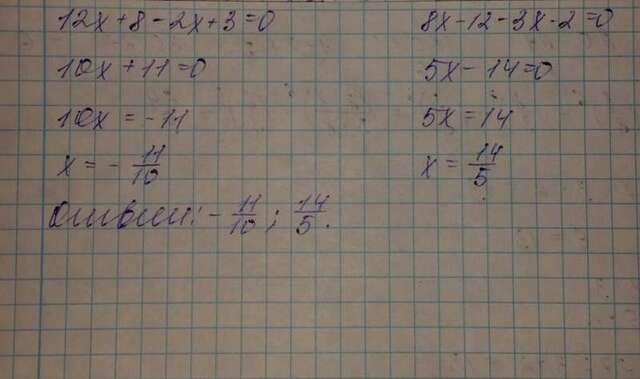 12x + 8 - 2x + 3 = 0
10x + 11 = 0
10x = -11
x = - 11/10
8x - 12 - 3x - 2 = 0
5x - 14 = 0
5x = 14
x = 14/5
Ответ: - 11/10 ; 14/5.